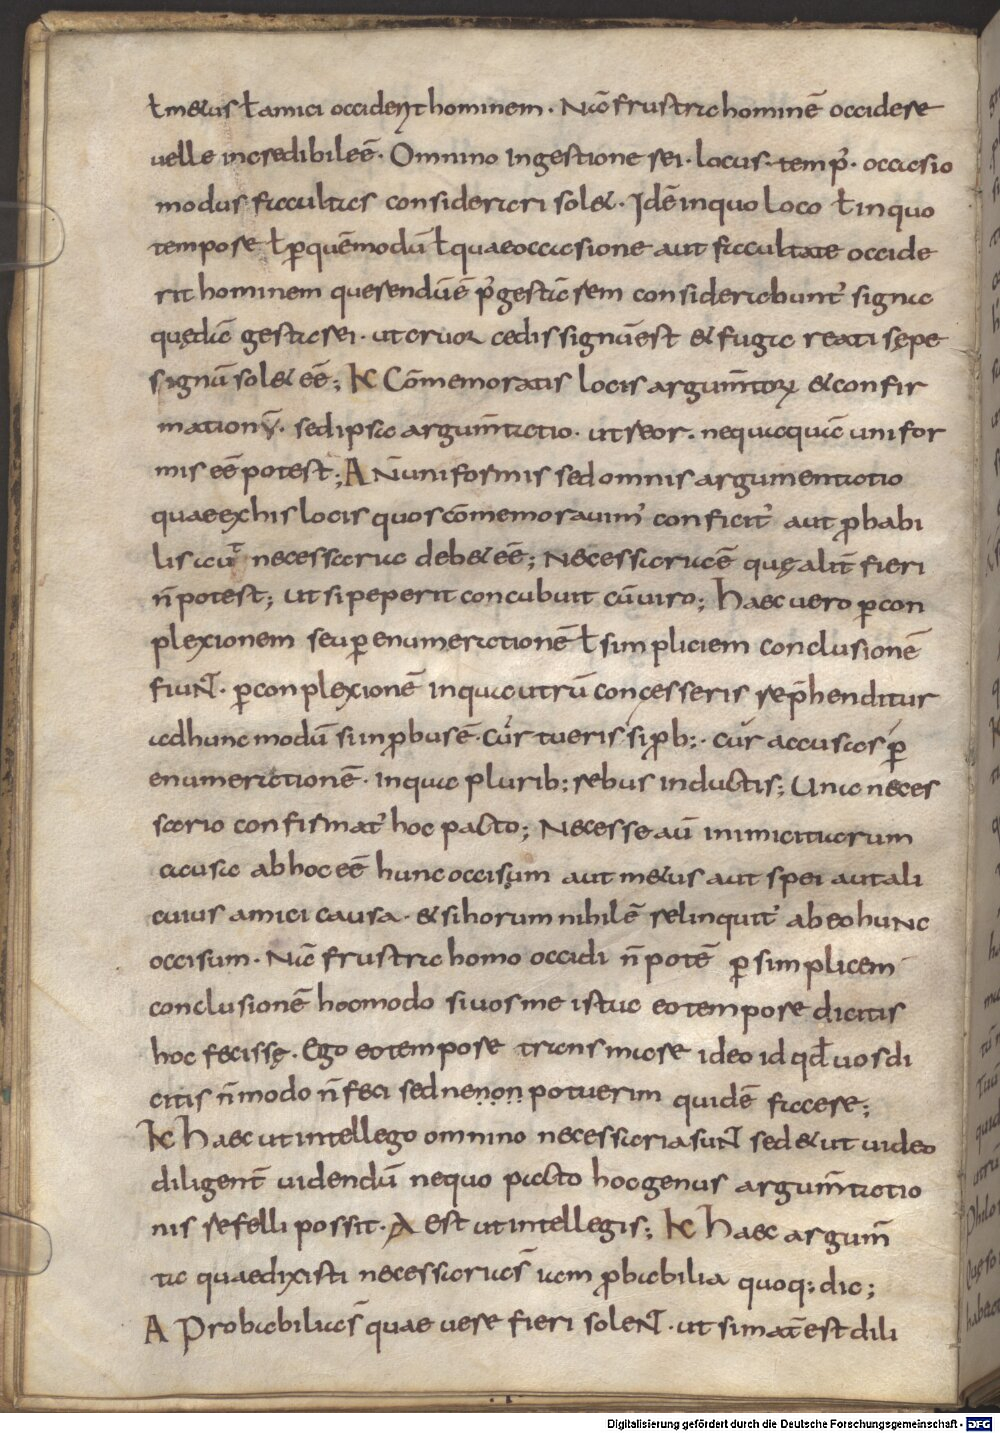 ł metus ł amici occiderent hominem. Nā frustra hominē occidere
uelle incredibile ē. Omnino in gestione rei. locus. temp̅. occasio
modus facultas considerari solet. Idē in quo loco ł in quo
tempore ł p̱ quē modū ł quae occasione aut facultate occide
rit hominem querendū ē p̅ gestā rem considerabunt̅ signa
quędā gesta rei. ut cruor cedis signū est & fuga reati sępe
signū solet eē; K Cōmemoratis locis argum̅torꝝ & confir
mationū. sed ipsa argum̅tatio. ut reor. nequaquā unifor
mis eē potest; A N̄ uniformis sed omnis argumentatio
quae ex his locis quos cōmemorauim̅ conficit̅ aut ꝓbabi
lis aut necessaria debet eē; Necessaria ē quę alit̅ fieri
n̄ potest; ut si peperit concubuit cū uiro; haec uero p̱ con
plexionem seu p̱ enumerationē ł simpliciem conclusionē
fiunt. p̱ conplexionē in qua utrū concesseris rep̅henditur
ad hunc modū si inꝓbus ē. Cur tueris si ꝓb;. cur accusas p̱
enumerationē. in qua plurib; rebus inductis; Una neces
sario confirmat̅ hoc pacto; Necesse aū inimicitiarum
causa ab hoc eē hunc occisum aut metus aut spei aut ali
cuius amici causa. & si horum nihil ē relinquit̅ ab eo hunc
occisum. Nā frustra homo occidi n̄ potē p̱ simplicem
conclusionē hoc modo si uos me istuc eo tempore dicitis
hoc fecissę. Ego eo tempore trans mare ideo id qđ uos di
citis n̄ modo n̄ feci sed ne non potuerim quidē facere;
K haec ut intellego omnino necessaria sunt sed & ut uideo
diligent̅ uidendū ne quo pacto hoc genus argum̅tatio
nis refelli possit. A Est ut intellegis; K haec argum̅
ta quae dixisti necessaria s̄ iam ꝓbabilia quoq; dic;
A Probabilia s̄ quae uere fieri solent. ut si mat̅ est dili
Digitalisierung gefördert durch die Deutsche Forschungsgemeinschaft - DFG